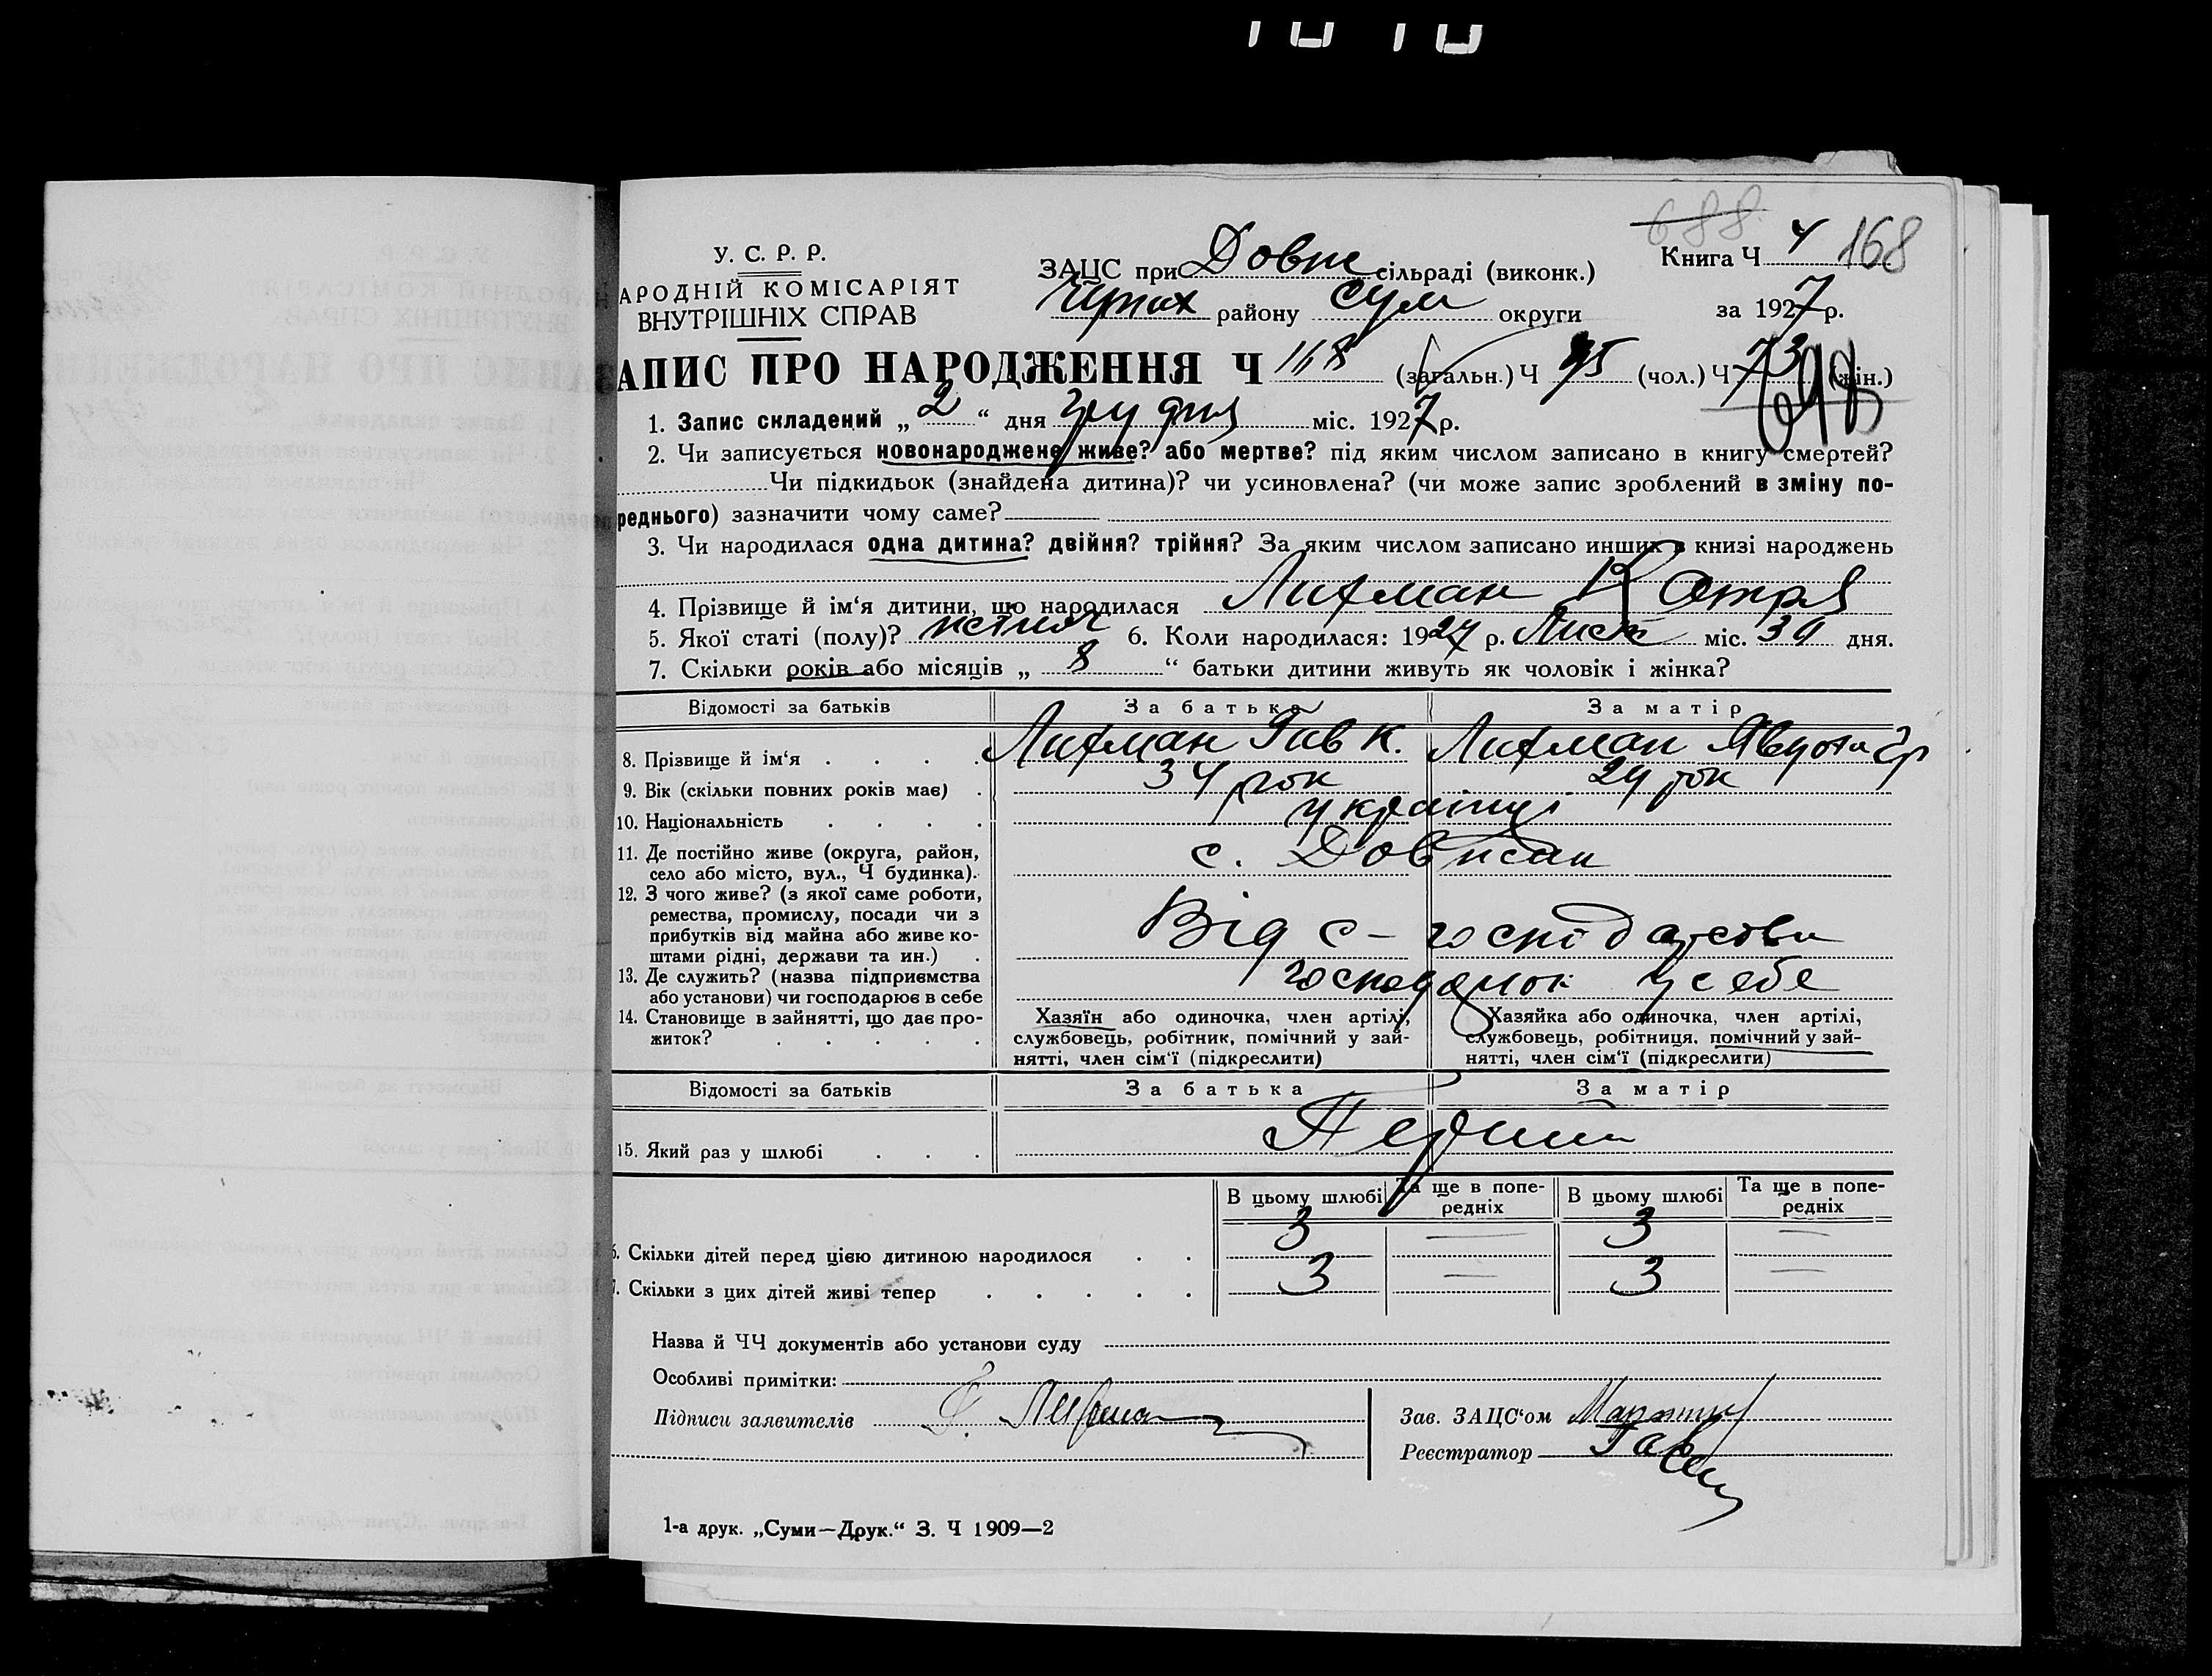 688
У. С. Р. Р.
АРОДНІЙ КОМІСАРІЯТ
ВНУТРІШНІХ СПРАВ
ЗАЦС при Довж сільраді (виконк.)
району Сум округи
Книга Ч 4 168
за 1927 р.
АПИС ПРО НАРОДЖЕННЯ Ч 168 (загальн.) Ч 95 (чол.) Ч 73 (жін.)
698
1. Запис складений „ 2 “ дня грудня міс. 1927 р.
2. Чи записується новонароджене живе? або мертве? під яким числом записано в книгу смертей?
Чи підкидьок (знайдена дитина)? чи усиновлена? (чи може запис зроблений в зміну по-
реднього) зазначити чому саме?
3. Чи народилася одна дитина? двійня? трійня? За яким числом записано инших в книзі народжень
4. Прізвище й ім‘я дитини, що народилася Лифман Катря
5. Якої статі (полу)? 6. Коли народилася: 1927 р. Лист міс. 30 дня.
7. Скільки років або місяців „ 8 “ батьки дитини живуть як чоловік і жінка?
Відомості за батьків За батька За матір
8. Прізвище й ім‘я . . . . Лифман К. Лифман Гр
9. Вік (скільки повних років має) . 34 рок 24 рок
10. Національність . . . . україні
11. Де постійно живе (округа, район,
село або місто, вул., Ч будинка). с.
12. З чого живе? (з якої саме роботи,
ремества, промислу, посади чи з
прибутків від майна або живе ко-
штами рідні, держави та ин.) . Від с-господарства
13. Де служить? (назва підприємства
або установи) чи господарює в себе у себе
14. Становище в зайнятті, що дає про-
житок? . . . . .
Хазяїн або одиночка, член артілі,
службовець, робітник, помічний у зай-
нятті, член сім‘ї (підкреслити)
Хазяйка або одиночка, член артілі,
службовець, робітниця, помічний у зай-
нятті, член сім‘ї (підкреслити)
Відомості за батьків За батька За матір
15. Який раз у шлюбі . . . Перший
В цьому шлюбі Та ще в попе-
редніх В цьому шлюбі Та ще в попе-
редніх
6. Скільки дітей перед цією дитиною народилося . . 3 — 3 —
7. Скільки з цих дітей живі тепер . . . . . 3 — 3 —
Назва й ЧЧ документів або установи суду
Особливі примітки:
Підписи заявителів
Зав. ЗАЦС‘ом
Реєстратор
1-а друк. „Суми—Друк.“ З. Ч 1909—2